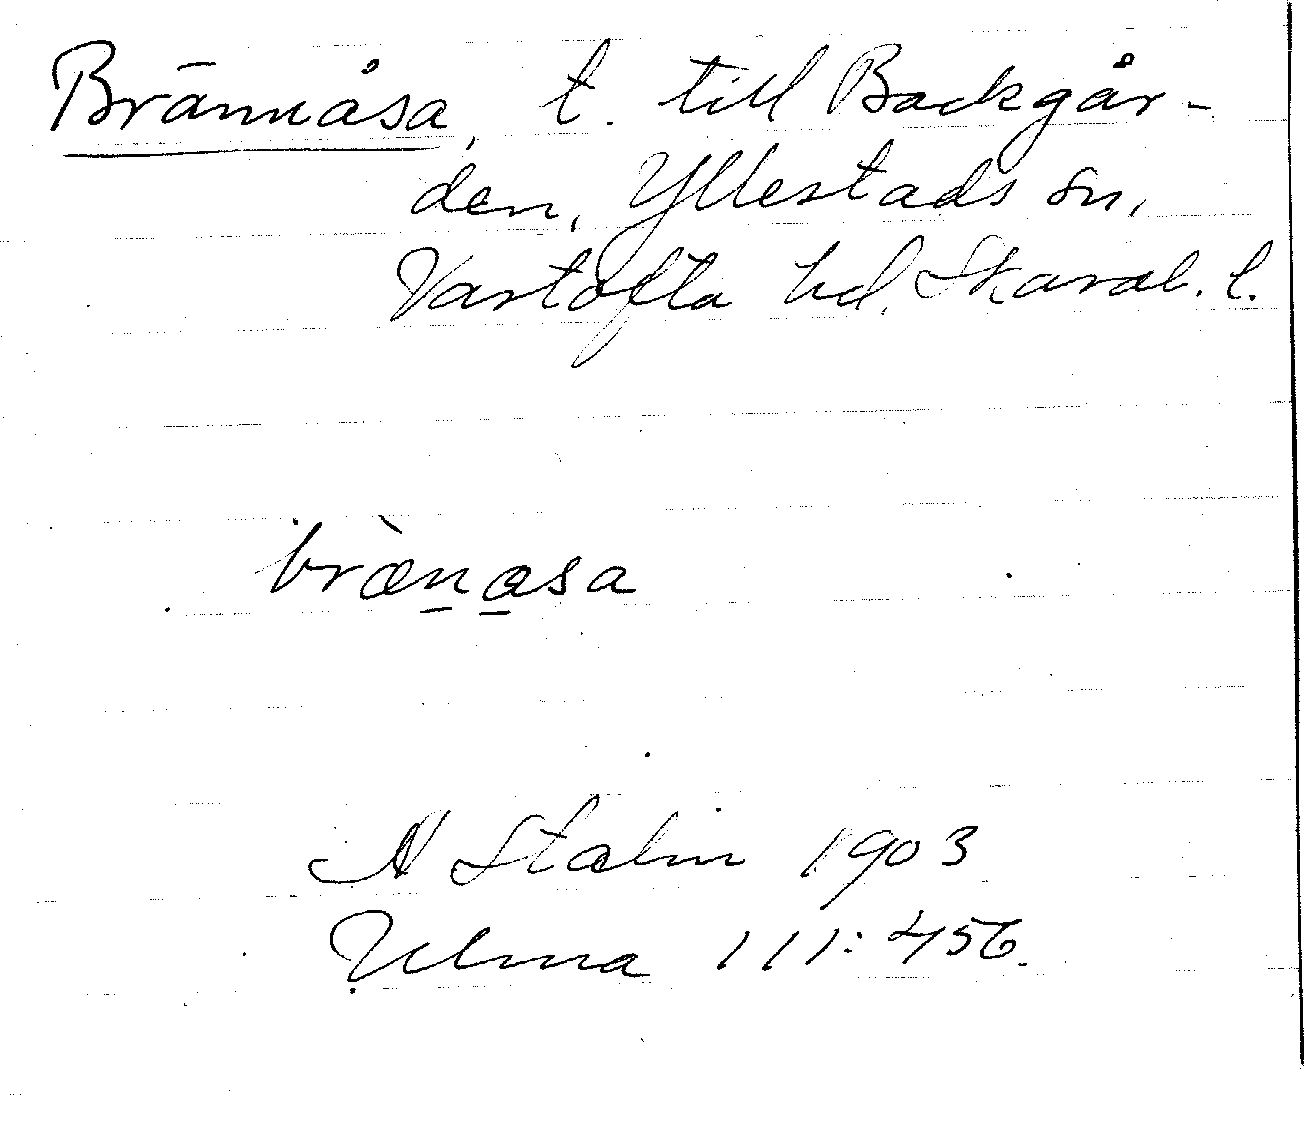 Brännåsa, t. till Backgår-
den, Yllestads sn,
Vartofta hd, Skarab. l.
bræ̀n̲a̲sa
A Stalin 1903
Ulma 111:456.